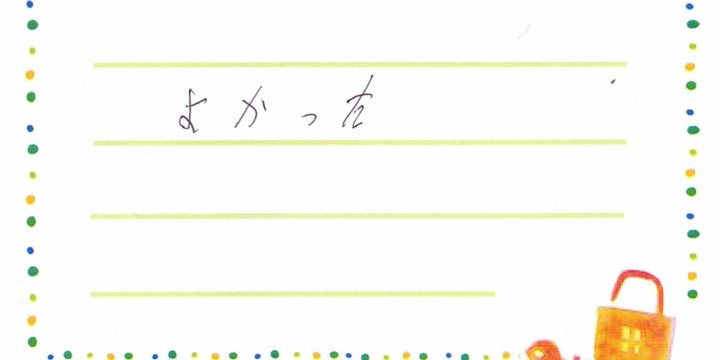 よかった